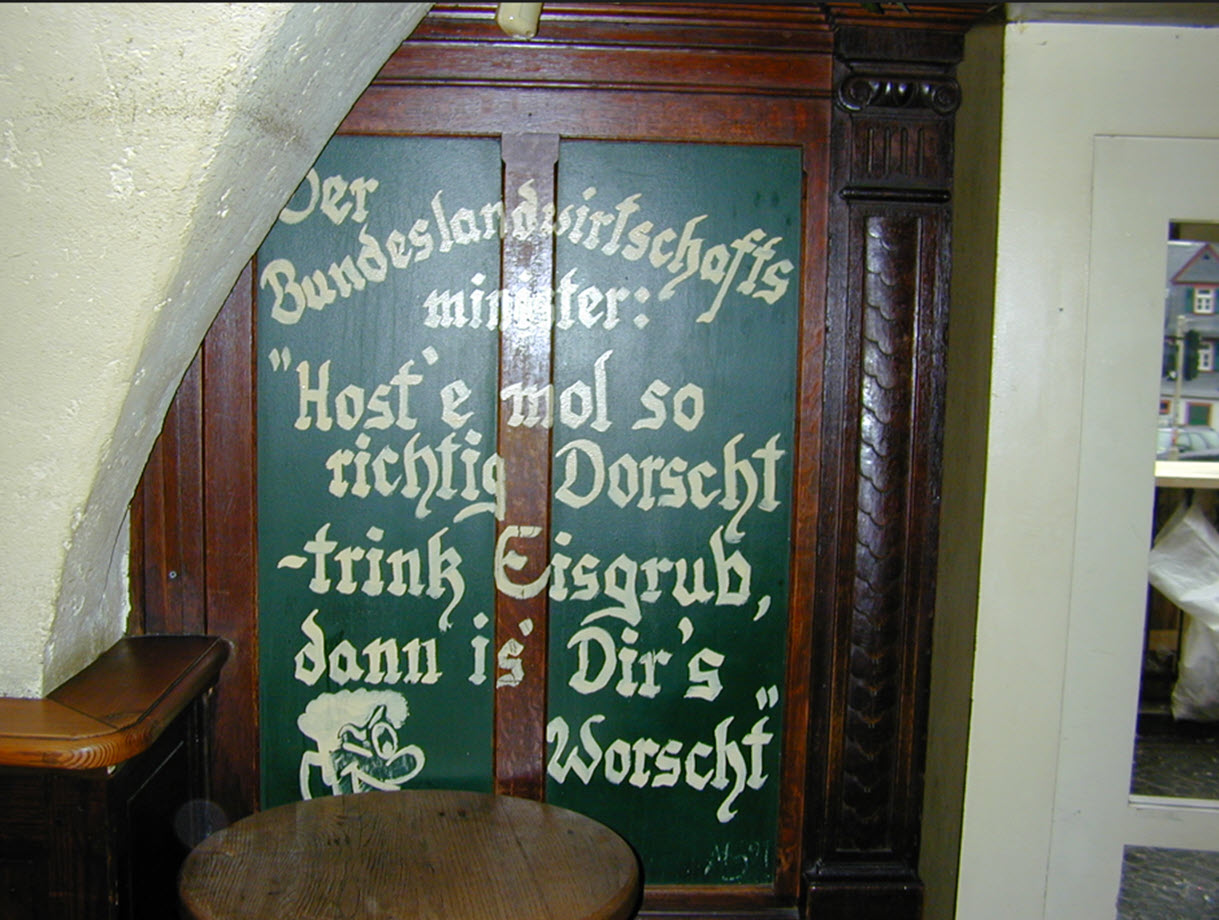 Der
Bundeslandwirtschafts
minister:
"Host'e mol so
richtig Dorscht
-trink Eisgrub,
dann is' Dir's
Worscht"